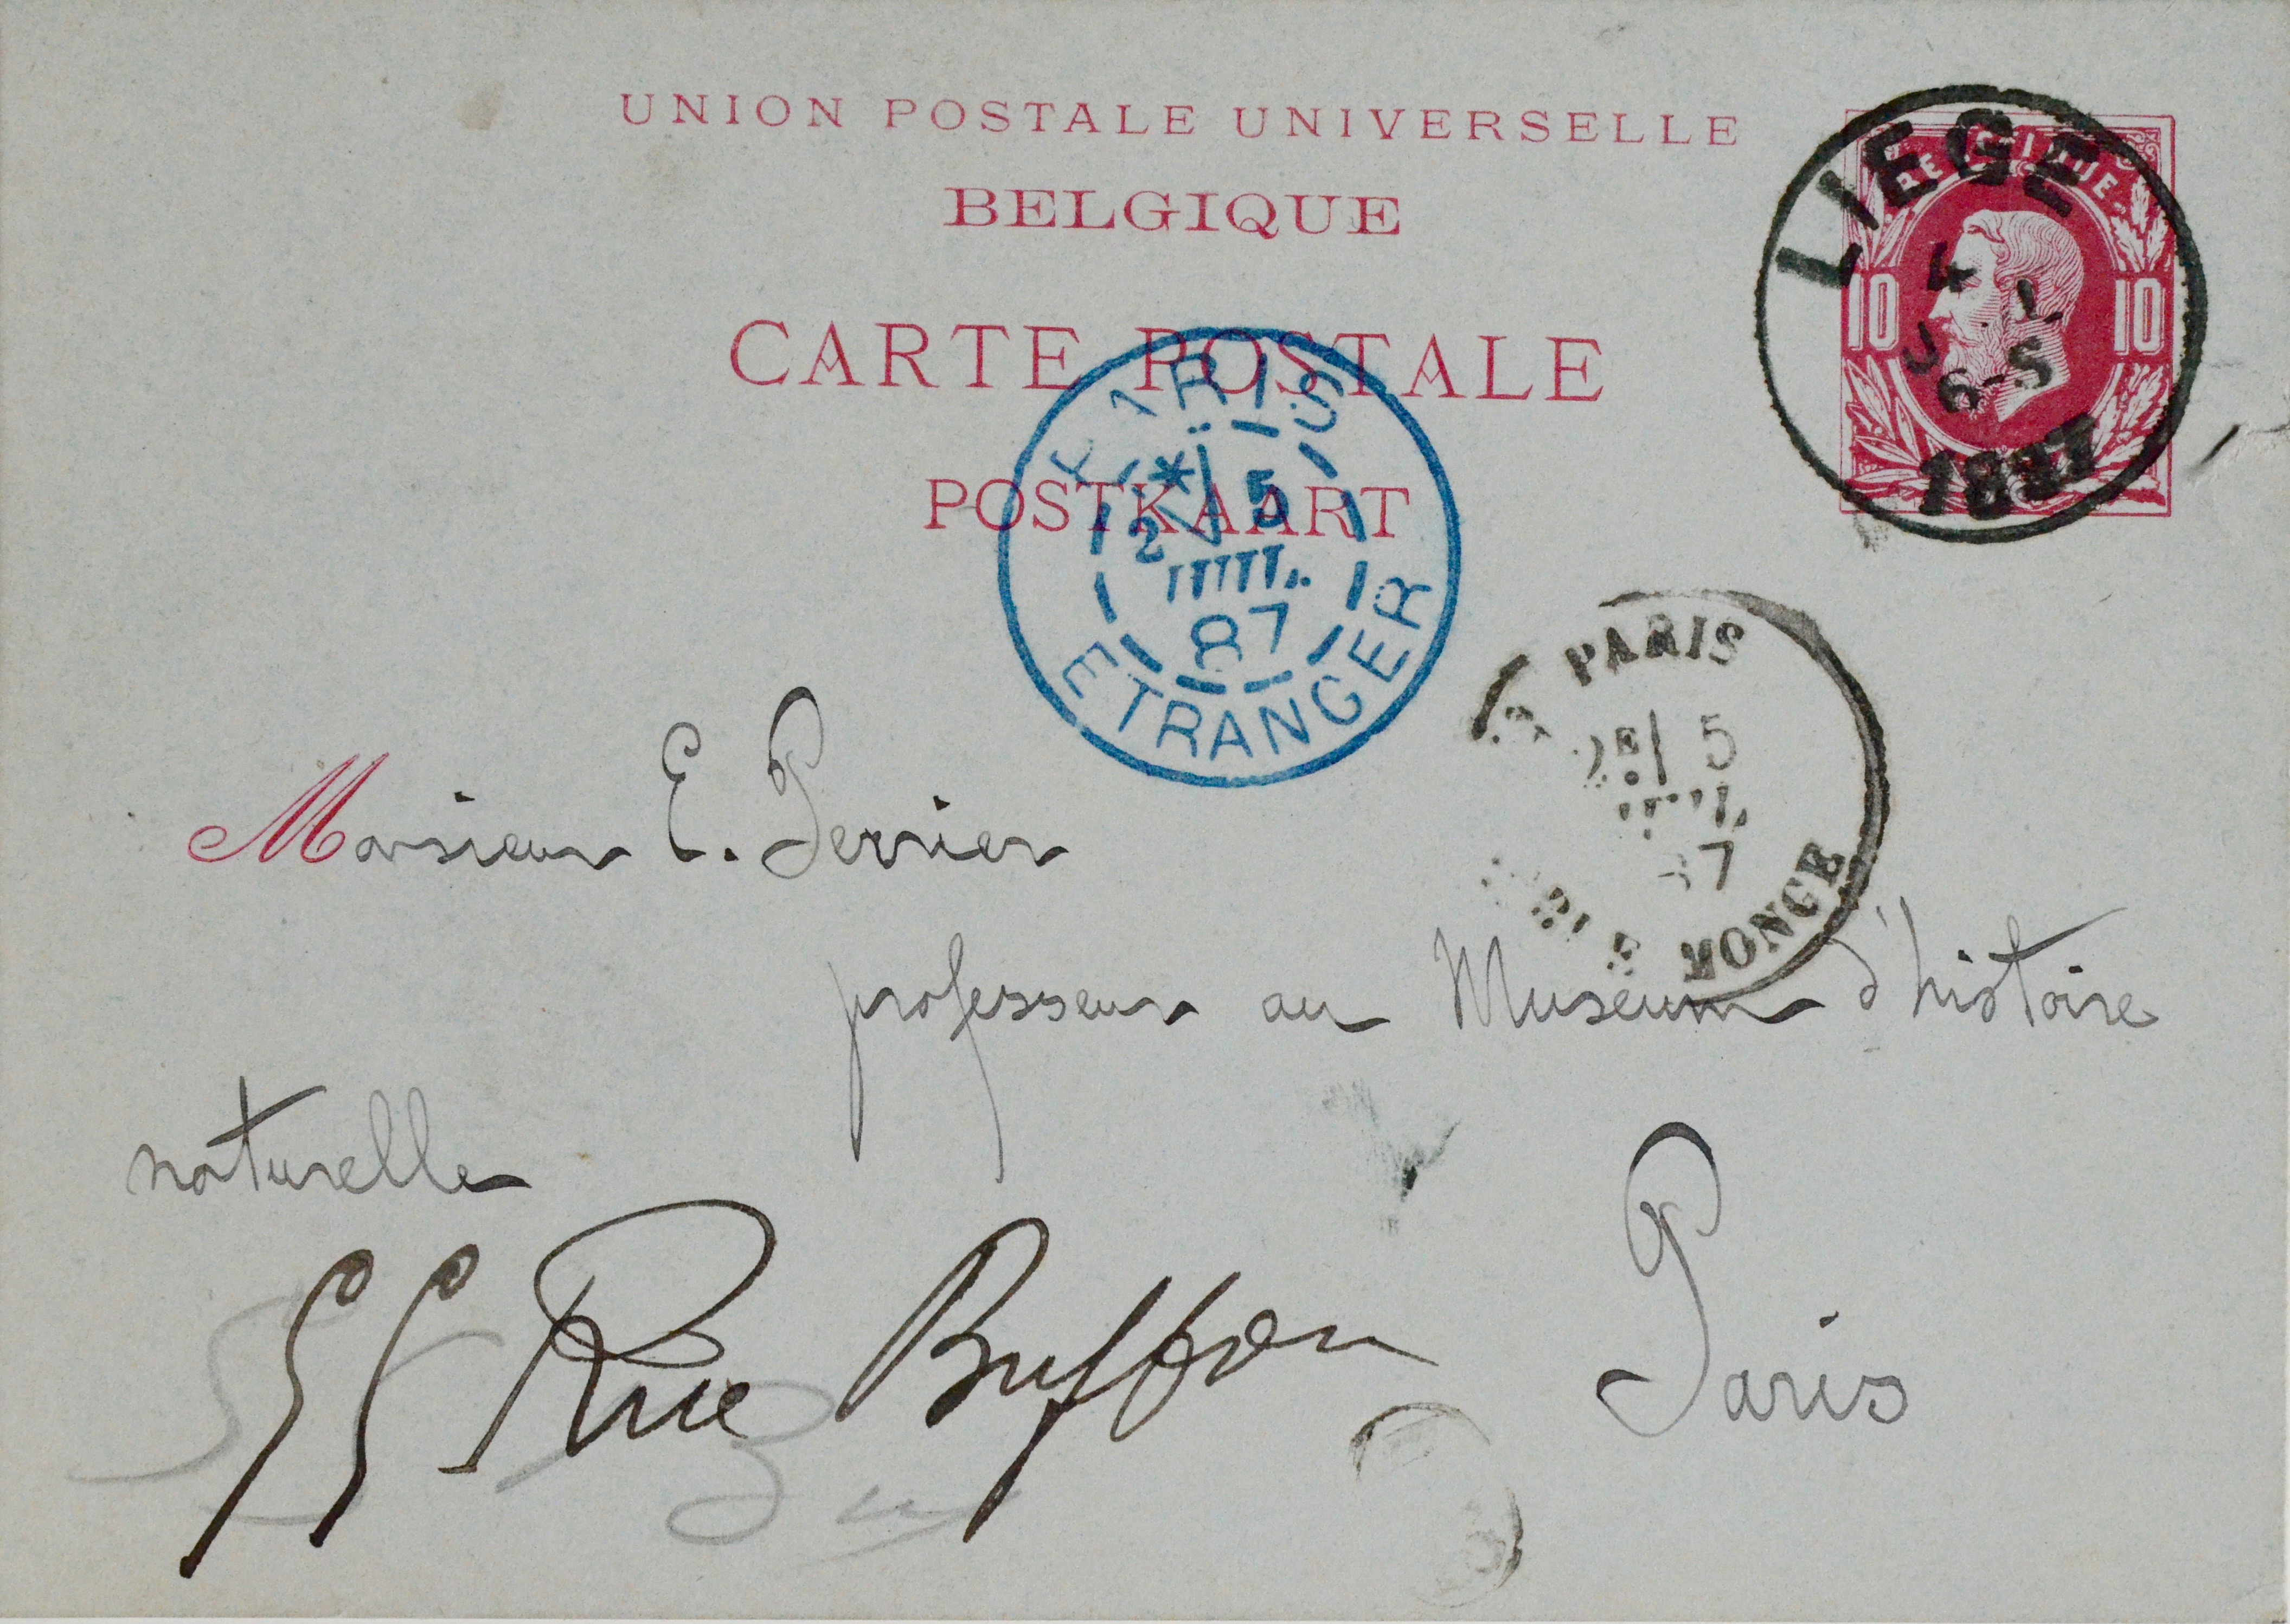 UNION POSTALE UNIVERSELLE
BELGIQUE
BELGIQUE
10 10
LIEGE
4
6-S
1887
CARTE POSTALE
POSTKAART
PARIS
2 5
JUIL.
87
ETRANGER
PARIS
2E 5
87
MONGE
Monsieur E. Perrier
professeur au Museum d'histoire
naturelle
55 Rue Buffon
Paris